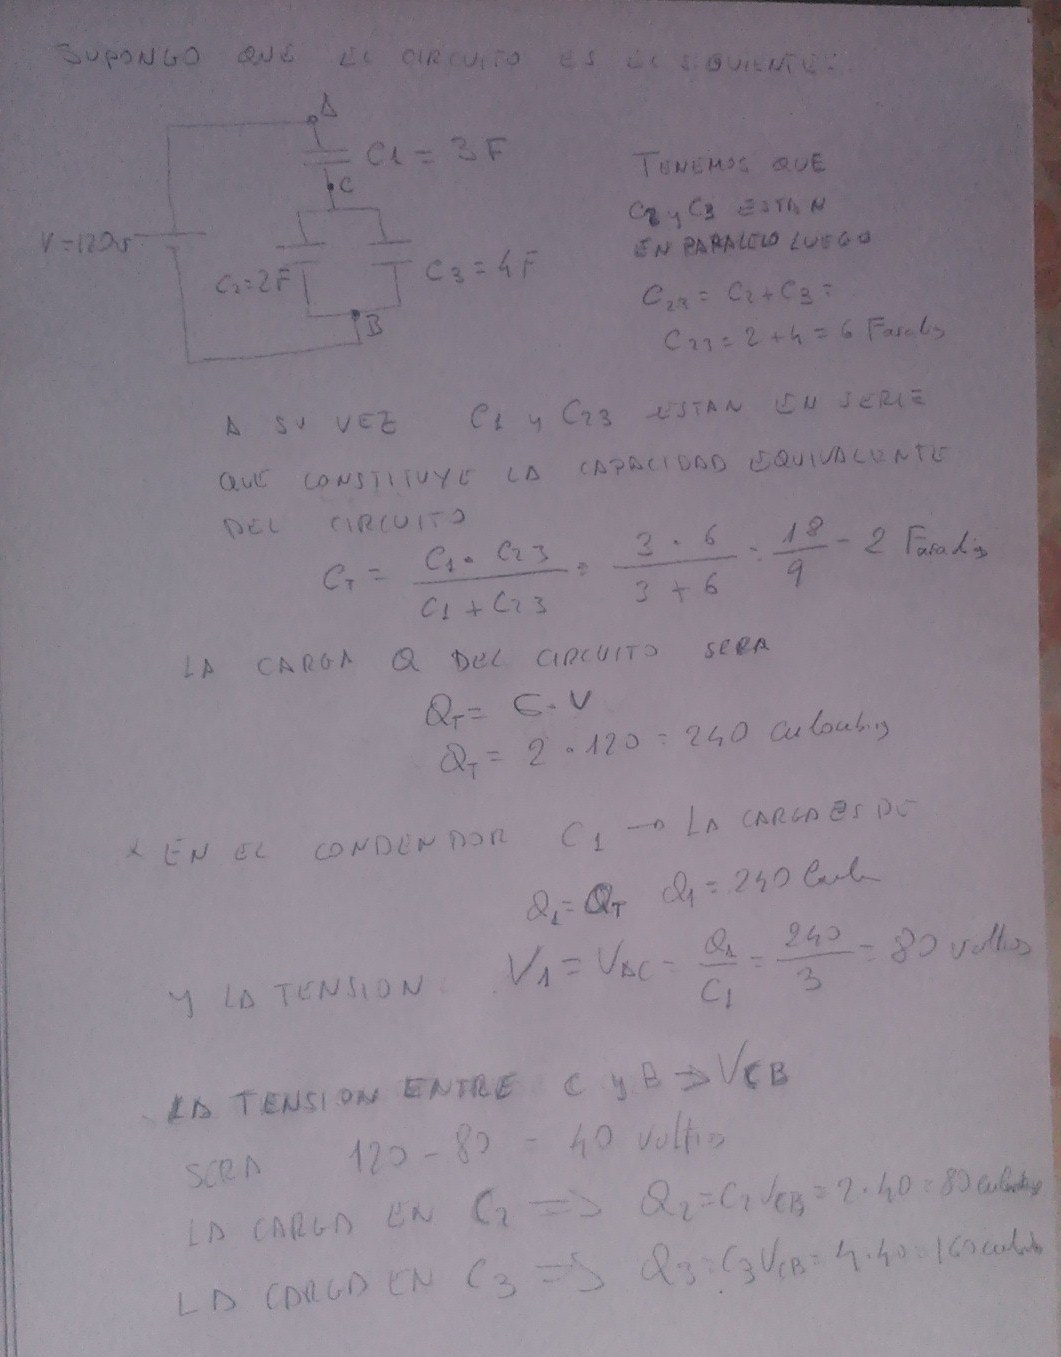 SUPONGO QUE EL CIRCUITO ES EL SIGUIENTE:
A
C1 = 3F
C
V=120v
C2=2F
C3=4F
B
TENEMOS QUE
C2 y C3 ESTAN
EN PARALELO LUEGO
C23 = C2+C3=
C23 = 2+4=6 Faradios
A SU VEZ C1 y C23 ESTAN EN SERIE
QUE CONSTITUYE LA CAPACIDAD EQUIVALENTE
DEL CIRCUITO
CT = C1 · C23 / C1 + C23 = 3 · 6 / 3 + 6 = 18 / 9 = 2 Faradios
LA CARGA Q DEL CIRCUITO SERA
QT = C·V
QT = 2 · 120 = 240 culombios
* EN EL CONDENDADOR C1 → LA CARGA ES DE
Q1=QT Q1=240 Culo
Y LA TENSION. V1 = VAC = Q1 / C1 = 240 / 3 = 80 voltios
LA TENSION ENTRE C y B ⇒ VCB
SERA 120 - 80 = 40 voltios
LA CARGA EN C2 ⇒ Q2=C2VCB=2·40=80 culombios
LA CARGA EN C3 ⇒ Q3=C3VCB=4·40=160 culombios